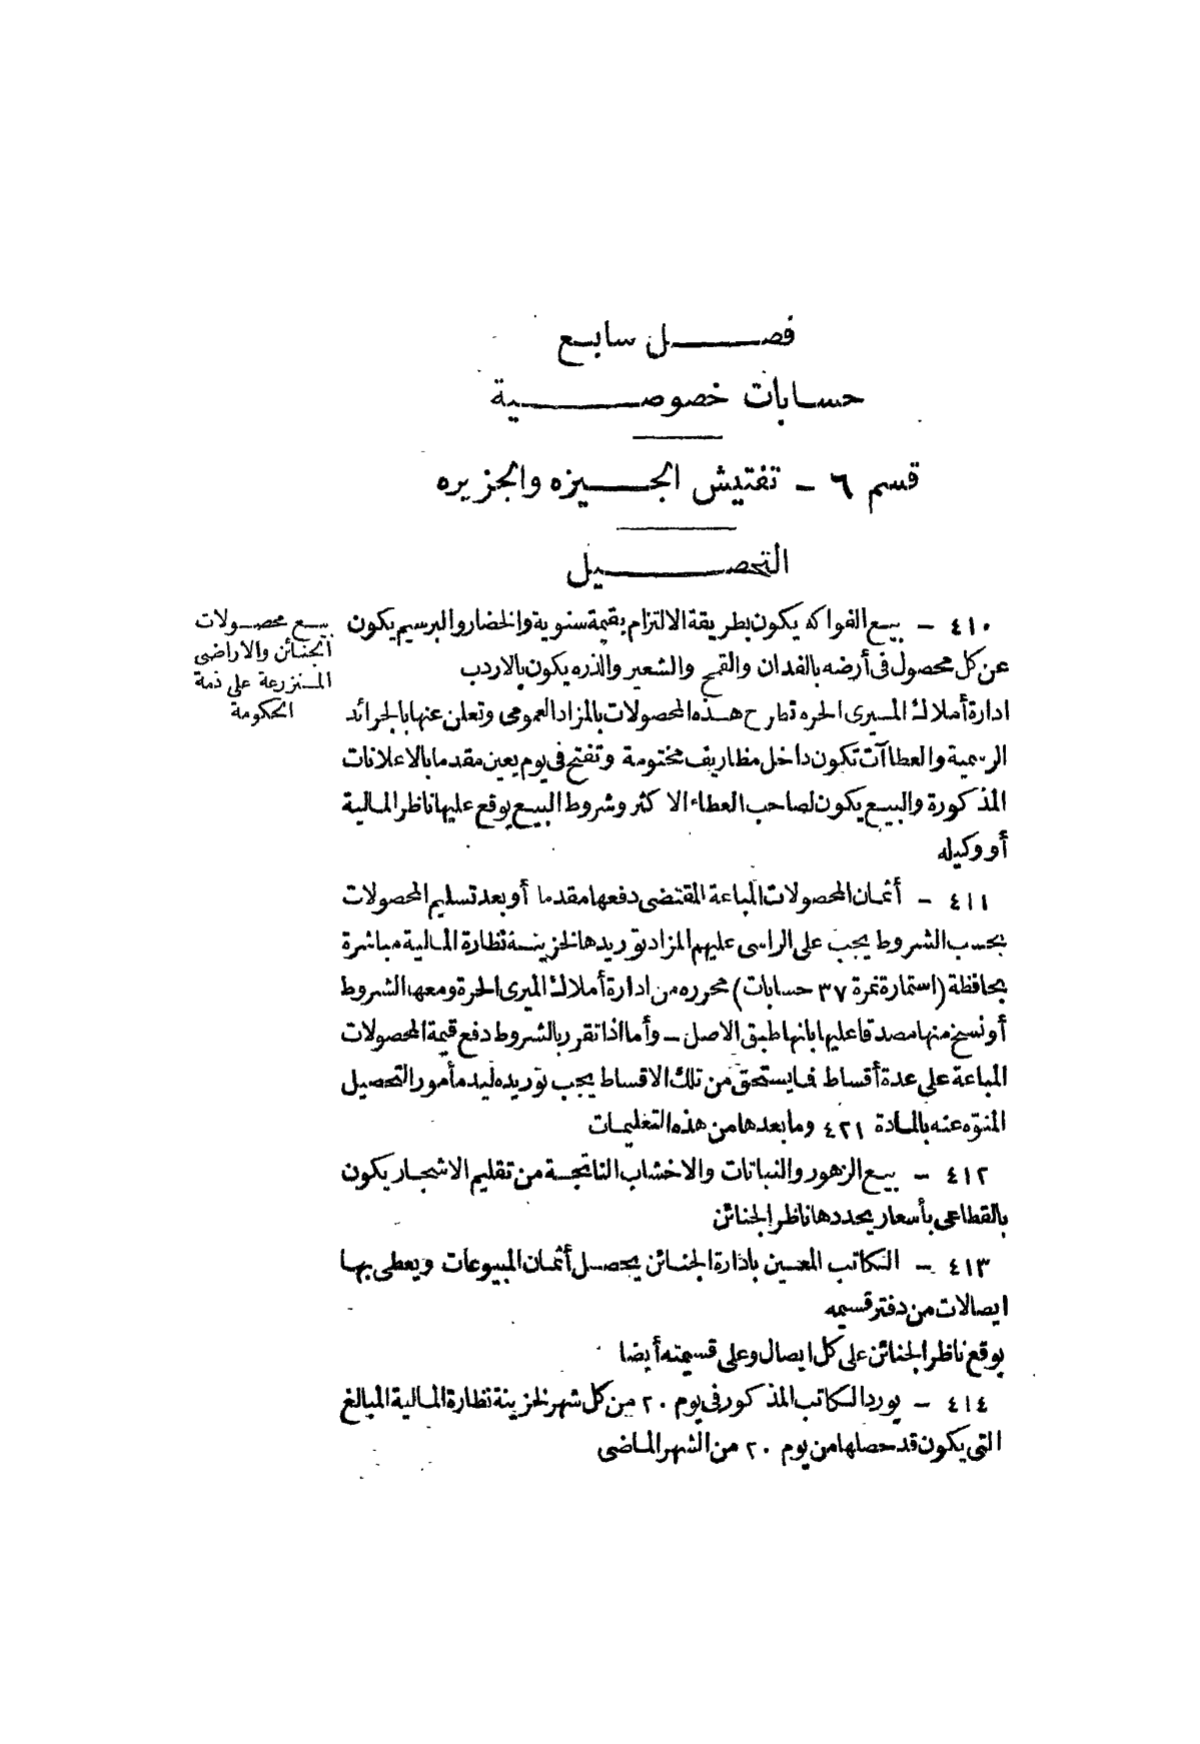 فصل سابع
حسابات خصوصية
قسم ٦ - تفتيش الجيزه والجزيره
التحصيل
بيع محصولات
الجنائن والاراضى
المنزرعة على ذمة
الحكومة
٤١٠ - بيع الفواكه يكون بطريقة الالتزام بقيمة سنوية والخضار والبرسيم يكون
عن كل محصول فى أرضه بالفدان والقمح والشعير والذره يكون بالاردب
ادارة أملاك الميرى الحره تطرح هذه المحصولات بالمزاد العمومى وتعلن عنها بالجرائد
الرسمية والعطاآت تكون داخل مظاريف مختومة وتفتح فى يوم يعين مقدما بالاعلانات
المذكورة والبيع يكون لصاحب العطاء الاكثر وشروط البيع يوقع عليها ناظر المالية
أو وكيله
٤١١ - أثمان المحصولات المباعة المقتضى دفعها مقدما أو بعد تسليم المحصولات
بحسب الشروط يجب على الراسى عليهم المزاد توريدها لخزينة نظارة المالية مباشرة
بحافظة (استمارة نمرة ٣٧ حسابات) محرره من ادارة أملاك الميرى الحرة ومعها الشروط
أو نسخ منها مصدقا عليها بانها طبق الاصل - وأما اذا تقرر بالشروط دفع قيمة المحصولات
المباعة على عدة أقساط فما يستحق من تلك الاقساط يجب توريده ليد مأمور التحصيل
المنوّه عنه بالمادة ٤٢١ وما بعدها من هذه التعليمات
٤١٢ - بيع الزهور والنباتات والاخشاب الناتجة من تقليم الاشجار يكون
بالقطاعى بأسعار يحددها ناظر الجنائن
٤١٣ - الكاتب المعين بادارة الجنائن يحصل أثمان المبيوعات ويعطى بها
ايصالات من دفتر قسيمه
يوقع ناظر الجنائن على كل ايصال وعلى قسيمته أيضا
٤١٤ - يورد الكاتب المذكور فى يوم ٢٠ من كل شهر لخزينة نظارة المالية المبالغ
التى يكون قد حصلها من يوم ٢٠ من الشهر الماضى